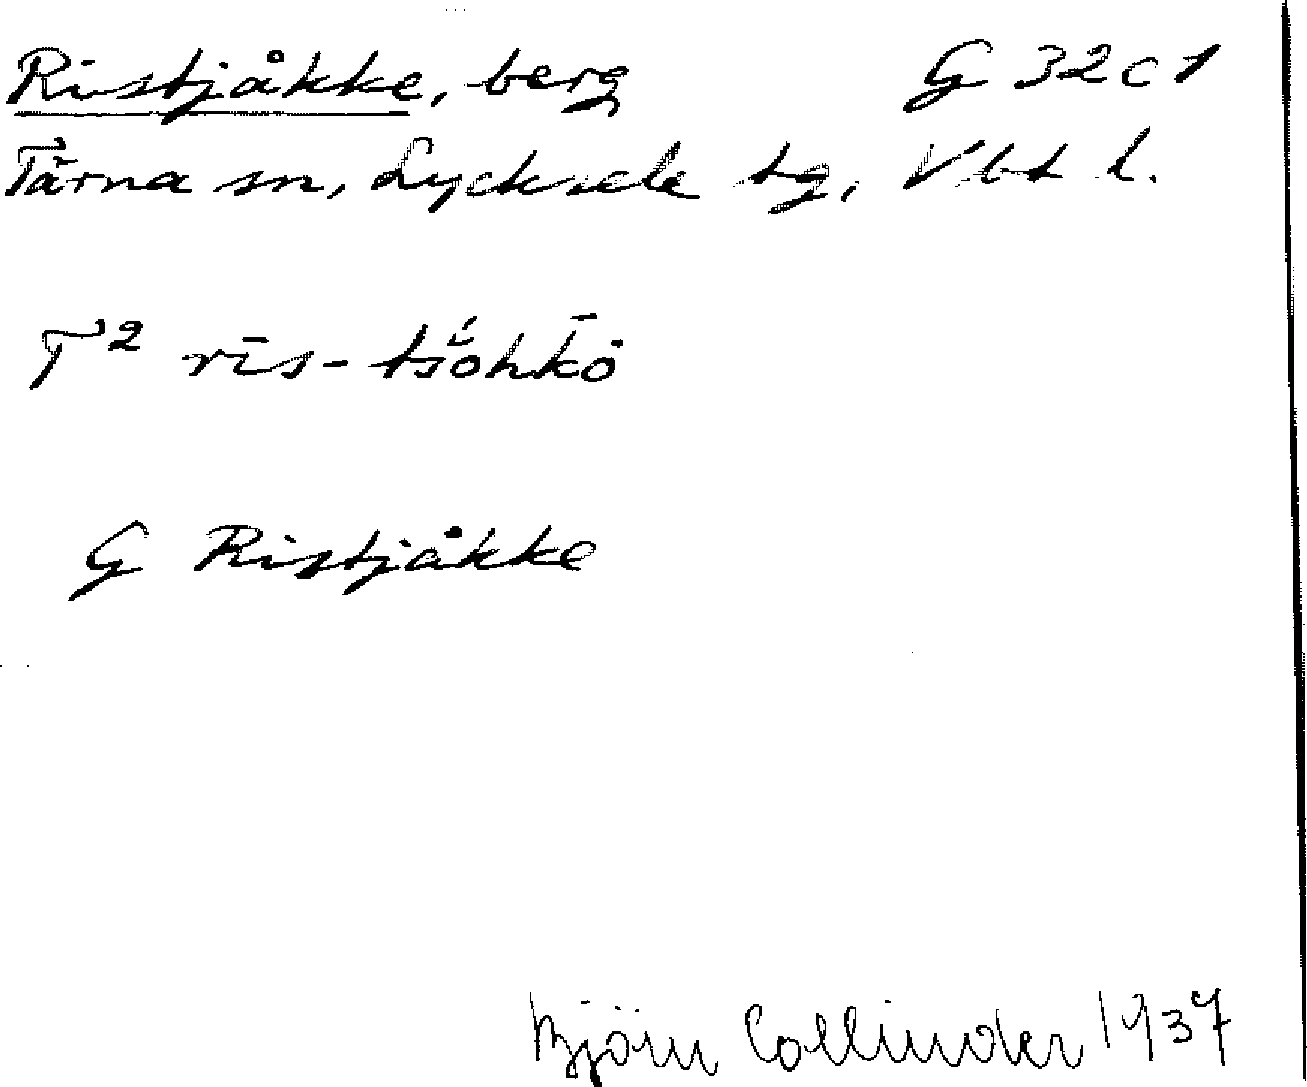 Ristjåkke, berg G 32 c 1
Tärna sn, Lycksele tg, Vbt l.
T² rīs-tšöhkö
G Ristjåkke
Björn Collinder 1937